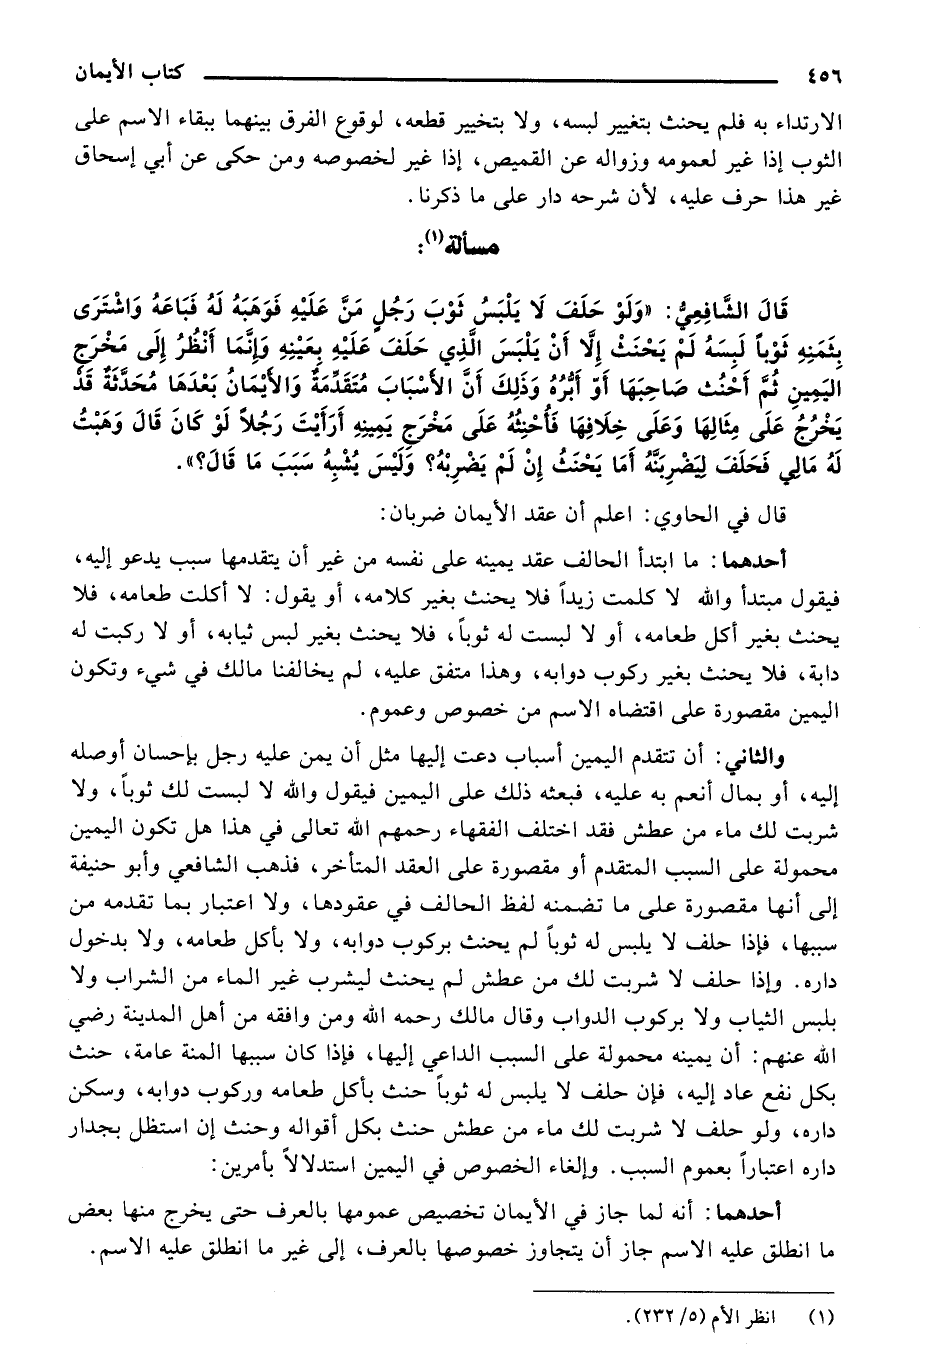 ٤٥٦ كتاب الأيمان
الارتداء به فلم يحنث بتغيير لبسه، ولا بتخيير قطعه، لوقوع الفرق بينهما ببقاء الاسم على
الثوب إذا غير لعمومه وزواله عن القميص، إذا غير لخصوصه ومن حكى عن أبي إسحاق
غير هذا حرف عليه، لأن شرحه دار على ما ذكرنا.
مسألة(١):
قَالَ الشَّافِعِيُّ: «وَلَوْ حَلَفَ لَا يَلْبَسُ ثَوْبَ رَجُلٍ مَنَّ عَلَيْهِ فَوَهَبَهُ لَهُ فَبَاعَهُ وَاشْتَرَى
بِثَمَنِهِ ثَوْباً لَبِسَهُ لَمْ يَحْنَثْ إِلَّا أَنْ يَلْبَسَ الَّذِي حَلَفَ عَلَيْهِ بِعَيْنِهِ وَإِنَّمَا أَنْظُرُ إِلَى مَخْرَجِ
اليَمِينِ ثُمَّ أَحْنُث صَاحِبَهَا أَوْ أَبُرُّهُ وَذَلِكَ أَنَّ الأَسْبَابَ مُتَقَدِّمَةٌ وَالأَيْمَانُ بَعْدَهَا مُحَدَّثَةٌ قَدْ
يَخْرُجُ عَلَى مِثَالِهَا وَعَلَى خِلَافِهَا فَأُحْنِثُهُ عَلَى مَخْرَجِ يَمِينِهِ أَرَأَيْتَ رَجُلاً لَوْ كَانَ قَالَ وَهَبْتُ
لَهُ مَالِي فَحَلَفَ لِيَضْرِبَنَّهُ أَمَا يَحْنَثُ إِنْ لَمْ يَضْرِبْهُ؟ وَلَيْسَ يُشْبِهُ سَبَبَ مَا قَالَ؟».
قال في الحاوي: اعلم أن عقد الأيمان ضربان:
أحدهما: ما ابتدأ الحالف عقد يمينه على نفسه من غير أن يتقدمها سبب يدعو إليه،
فيقول مبتدأ والله لا كلمت زيداً فلا يحنث بغير كلامه، أو يقول: لا أكلت طعامه، فلا
يحنث بغير أكل طعامه، أو لا لبست له ثوباً، فلا يحنث بغير لبس ثيابه، أو لا ركبت له
دابة، فلا يحنث بغير ركوب دوابه، وهذا متفق عليه، لم يخالفنا مالك في شيء وتكون
اليمين مقصورة على اقتضاه الاسم من خصوص وعموم.
والثاني: أن تتقدم اليمين أسباب دعت إليها مثل أن يمن عليه رجل بإحسان أوصله
إليه، أو بمال أنعم به عليه، فبعثه ذلك على اليمين فيقول والله لا لبست لك ثوباً، ولا
شربت لك ماء من عطش فقد اختلف الفقهاء رحمهم الله تعالى في هذا هل تكون اليمين
محمولة على السبب المتقدم أو مقصورة على العقد المتأخر، فذهب الشافعي وأبو حنيفة
إلى أنها مقصورة على ما تضمنه لفظ الحالف في عقودها، ولا اعتبار بما تقدمه من
سببها، فإذا حلف لا يلبس له ثوباً لم يحنث بركوب دوابه، ولا بأكل طعامه، ولا بدخول
داره. وإذا حلف لا شربت لك من عطش لم يحنث ليشرب غير الماء من الشراب ولا
بلبس الثياب ولا بركوب الدواب وقال مالك رحمه الله ومن وافقه من أهل المدينة رضي
الله عنهم: أن يمينه محمولة على السبب الداعي إليها، فإذا كان سببها المنة عامة، حنث
بكل نفع عاد إليه، فإن حلف لا يلبس له ثوباً حنث بأكل طعامه وركوب دوابه، وسكن
داره، ولو حلف لا شربت لك ماء من عطش حنث بكل أقواله وحنث إن استظل بجدار
داره اعتباراً بعموم السبب. وإلغاء الخصوص في اليمين استدلالاً بأمرين:
أحدهما: أنه لما جاز في الأيمان تخصيص عمومها بالعرف حتى يخرج منها بعض
ما انطلق عليه الاسم جاز أن يتجاوز خصوصها بالعرف، إلى غير ما انطلق عليه الاسم.
(١) انظر الأم (٥/ ٢٣٢).